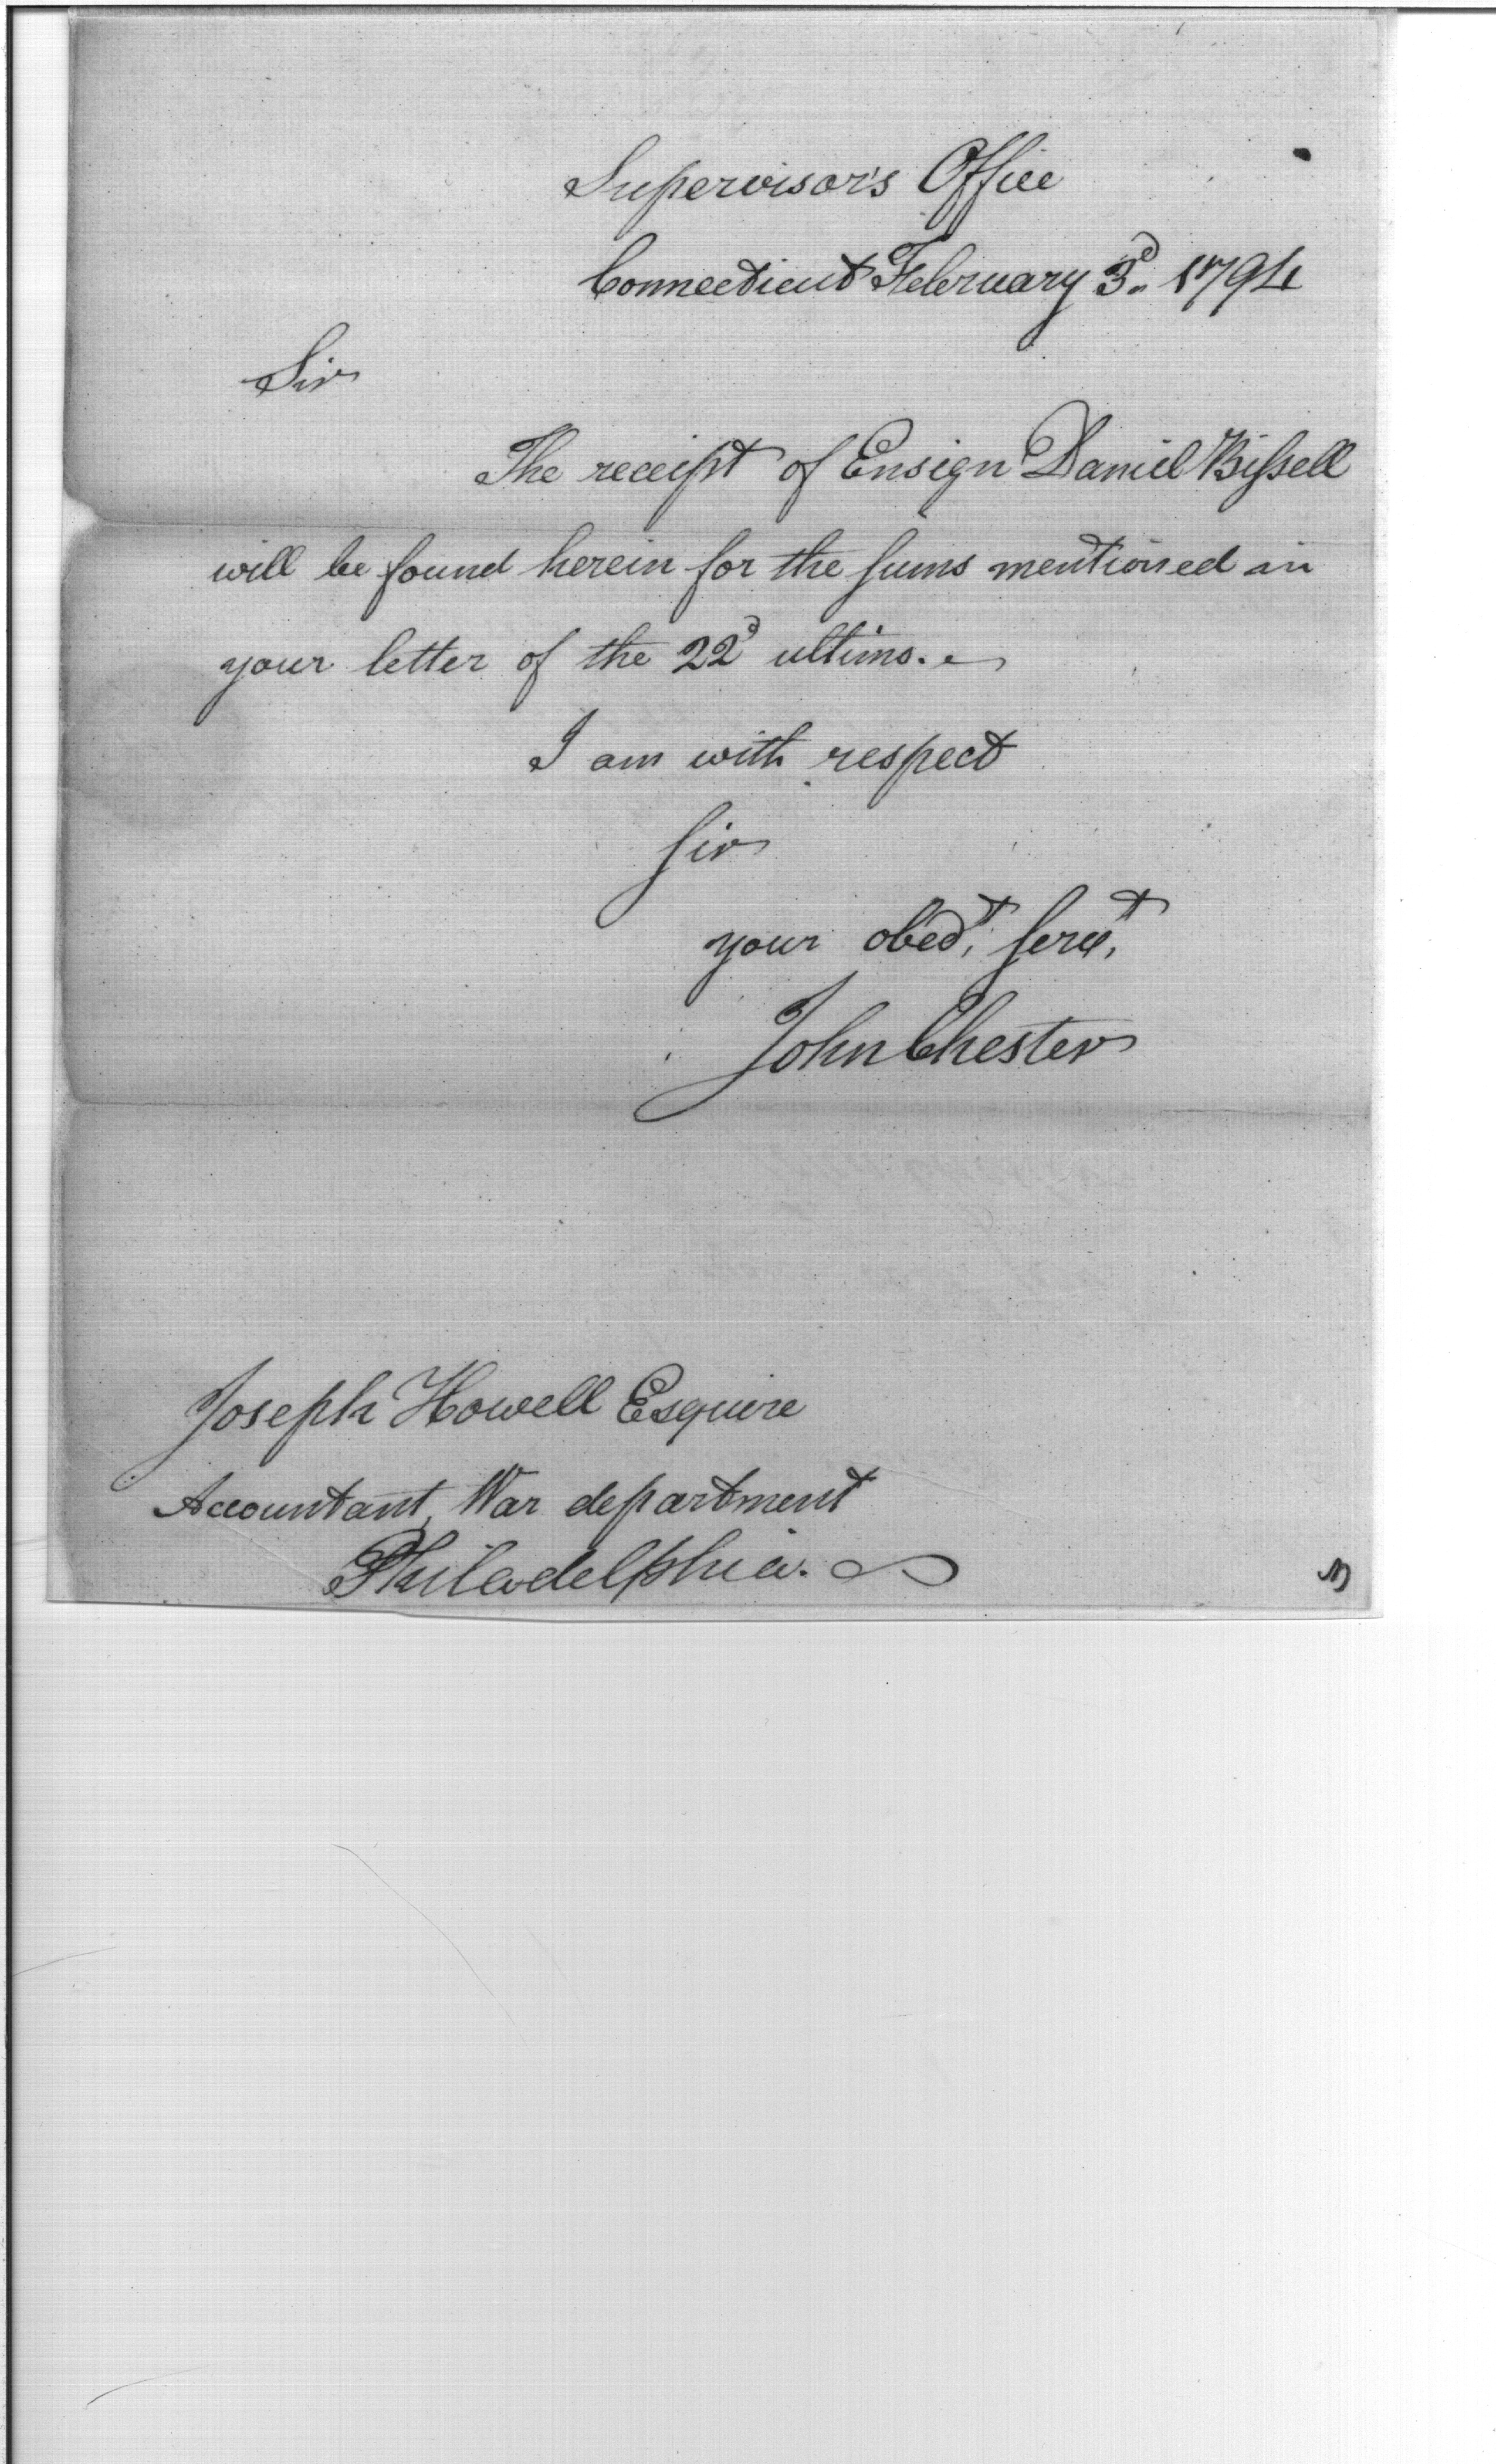 Supervisor's Office
Connecticut February 3d. 1794
Sir
The receipt of Ensign Daniel Bissell
will be found herein for the sums mentioned in
your letter of the 22d ultimo.
I am with respect
Sir
your obedt. servt.
John Chester
Joseph Howell Esquire
Accountant, War department
Philadelphia.